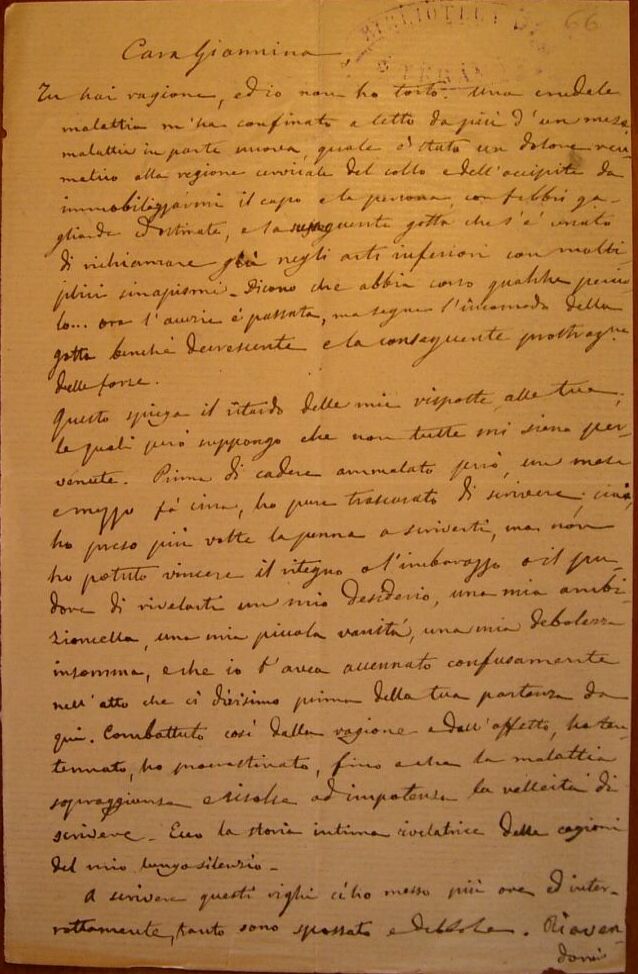 66
BIBLIOTECA
Cara Giannina
Tu hai ragione, ed io non ho torto. Una crudele
malattia m'ha confinato a letto da più d'un mese
malattia in parte nuova, quale è stato un dolore reu-
matico alla regione cervicale del collo e dell'occipite da
immobilizzarmi il capo e la persona, con febbri ga-
gliarde ed ostinate, e la susseguente gotta che s'è cercato
di richiamare giù negli arti inferiori con molti-
plici sinapismi. Dicono che abbia corso qualche perico-
lo... ora l'acuzie è passata, ma segue l'incomodo della
gotta benchè decrescente e la conseguente prostrazne
delle forze.
Questo spiega il ritardo delle mie risposte alle tue,
le quali però suppongo che non tutte mi siano per-
venute. Prima di cadere ammalato però, un mese
e mezzo fa circa, ho pure trascurato di scrivere; cioè,
ho preso più volte la penna a scriverti, ma non
ho potuto vincere il ritegno o l'imbarazzo o il pu-
dore di rivelarti un mio desiderio, una mia ambi-
zioncella, una mia piccola vanità, una mia debolezza
insomma, e che io t'avea accennato confusamente
nell'atto che ci divisimo prima della tua partenza da
qui. Combattuto così dalla ragione e dall'affetto, ho ten-
tennato, ho procrastinato, fino a che la malattia
sopraggiunse e risolse ad impotenza la velleità di
scrivere. Ecco la storia intima rivelatrice delle cagioni
del mio lungo silenzio.
A scrivere questi righi ci ho messo più ore ed inter-
rottamente, tanto sono spossato e debole. Riaven-
domi